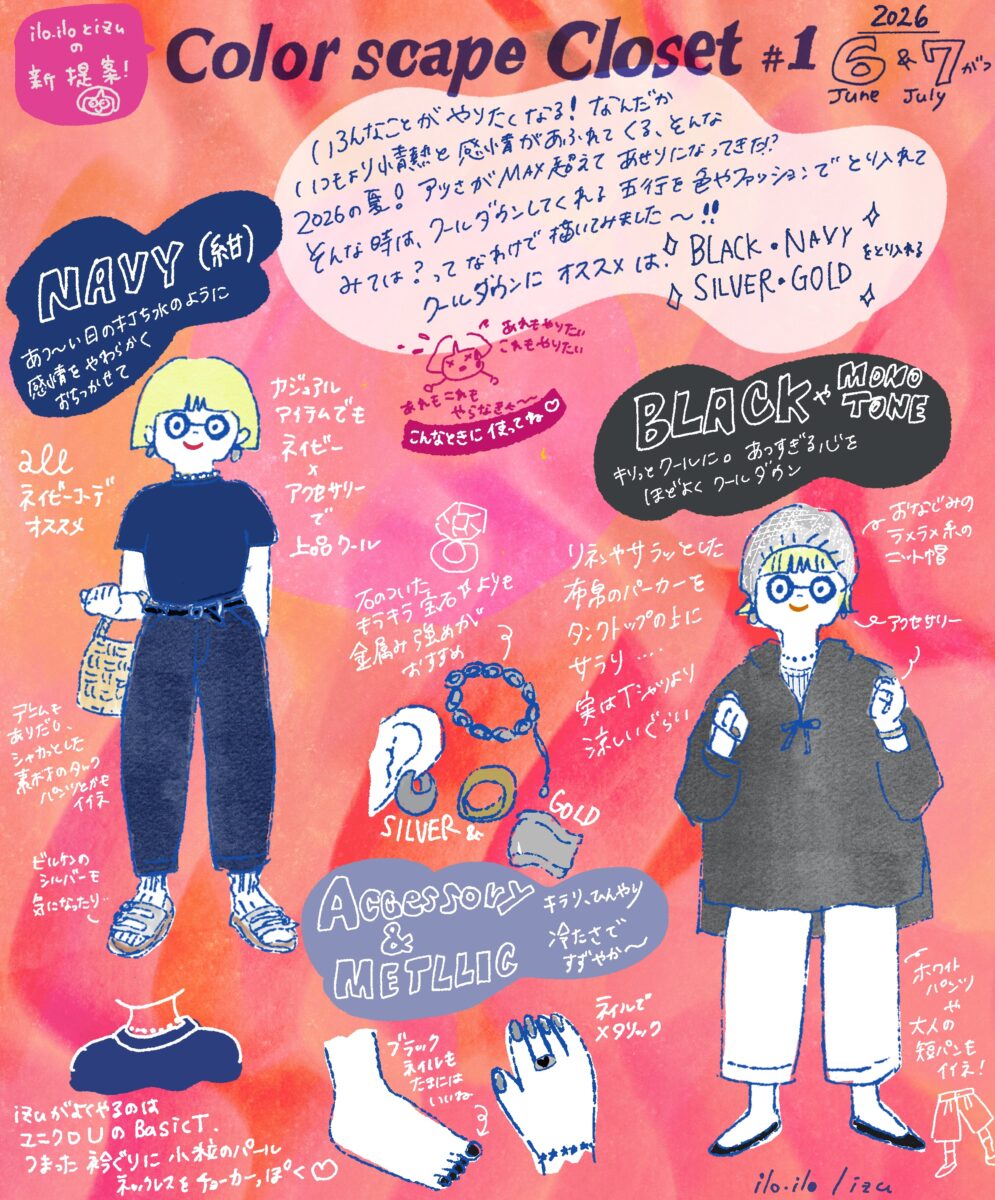 ilo.iloとizu
の
新提案!
Color scape Closet #1
2026
6 & 7がつ
June July
いろんなことが やりたくなる! なんだか
いつもより情熱と 感情があふれてくる、そんな
2026の夏! アツさがMAX超えて あせりになってきた!?
そんな時は、クールダウンしてくれる 五行を 色やファッションで とり入れて
みては? って なわけで 描いてみました〜!!
クールダウンに オススメは、BLACK・NAVY
SILVER・GOLD をとり入れる
NAVY (紺)
あつ〜い日の打ち水のように
感情を やわらかく
おちつかせて
あれもやりたい
これもやりたい
あれも これも
やらなきゃ〜〜
こんなときに 使ってね♡
BLACKや MONO
TONE
キリっとクールに。あつすぎる心を
ほどよく クールダウン
all
ネイビーコーデ
オススメ
カジュアル
アイテムでも
ネイビー
×
アクセサリー
で
上品クール
おなじみの
ラメラメ糸の
ニット帽
アクセサリー
石のついた
キラキラ宝石よりも
金属み 強めが
おすすめ
リネンやサラッとした
布帛のパーカーを
タンクトップの上に
サラリ ....
実はTシャツより
涼しいぐらい
デニムも
ありだし、
シャカっとした
素材のタック
パンツとかも
イイネ
ビルケンの
シルバーも
気になったり...
SILVER &
GOLD
Accessory
&
METLLIC
キラリ、ひんやり
冷たさで
すずやか〜
ホワイト
パンツ
や
大人の
短パンも
イイネ!
ブラック
ネイルも
たまには
いいね
ネイルで
メタリック
izuがよくやるのは
ユニクロUのBasicT.
つまった 衿ぐりに 小粒のパール
ネックレスを チョーカーっぽく♡
ilo.ilo / izu